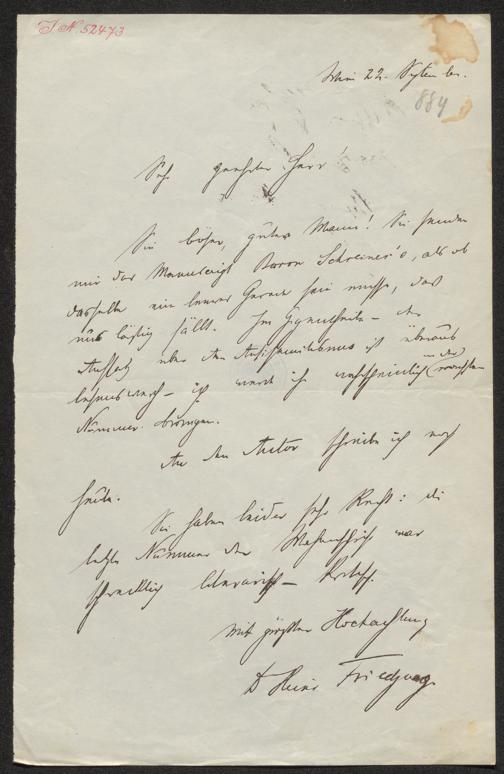 J.N. 52473
Wien 22. September.
884
Sehr geehrter Herr!
Sie böser, guter Mann! Sie senden
mir das Manuscript Baron Schreiner's, als ob
dasselbe ein sein müsse, das
uns lästig fällt. Im Gegentheile – der
Aufsatz über den Antisemitismus ist überaus
lesenswerth – ich werde ihn wahrscheinlich in der nächsten
Nummer bringen.
An den Autor schreibe ich noch
heute.
Sie haben leider sehr Recht: die
letzte Nummer der Wochenschrift war
schrecklich literarisch –
Mit größter Hochachtung
Dr Heinr Friedjung